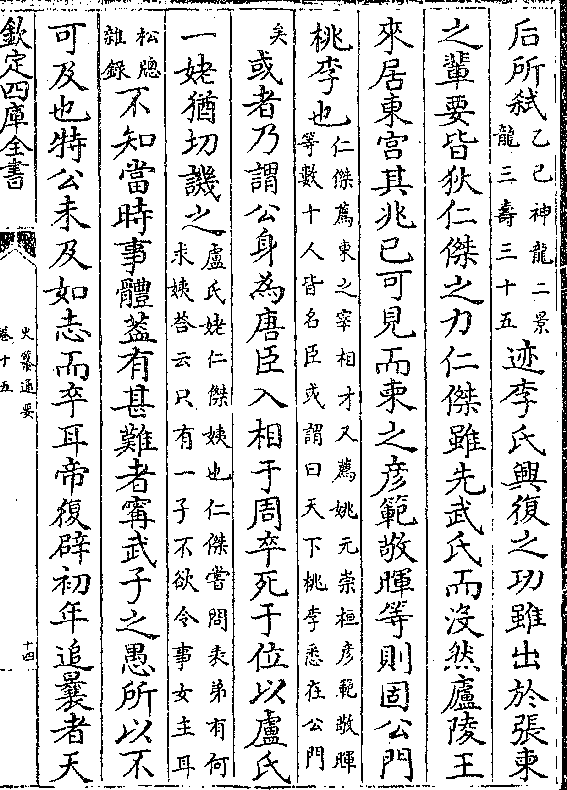 后所弑乙巳神龍二景龍三壽三十五迹李氏興復之功雖出於張柬
之輩要皆狄仁傑之力仁傑雖先武氏而沒然廬陵王
來居東宮其兆已可見而柬之彦範敬暉等則固公門
桃李也仁傑薦柬之宰相才又薦姚元崇桓彦範敬暉等數十人皆名臣或謂曰天下桃李悉在公門
矣或者乃謂公身為唐臣入相于周卒死于位以盧氏
一姥猶切譏之盧氏姥仁傑姨也仁傑嘗問表弟有何求姨答云只有一子不欲令事女主耳
松牕雜錄不知當時事體葢有甚難者甯武子之愚所以不
可及也特公未及如志而卒耳帝復辟初年追曩者天
欽定四庫全書
史纂通要
卷十五
十四